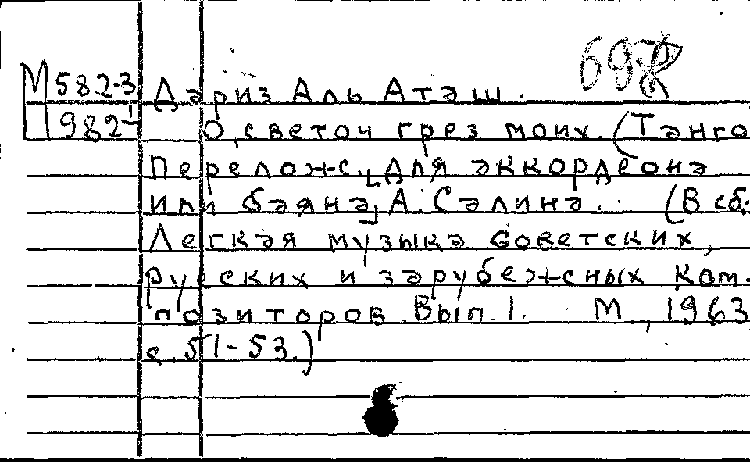 698
М 582-3 Дариз Аль Аташ.
П 982-1 О, светоч грез моих. (Танго
Перелож. [для аккордеона
или баяна] А. Салина. (В сб:
Легкая музыка советских,
русских и зарубежных ком-
позиторов. Вып. 1. М., 1963
с. 51-53.)